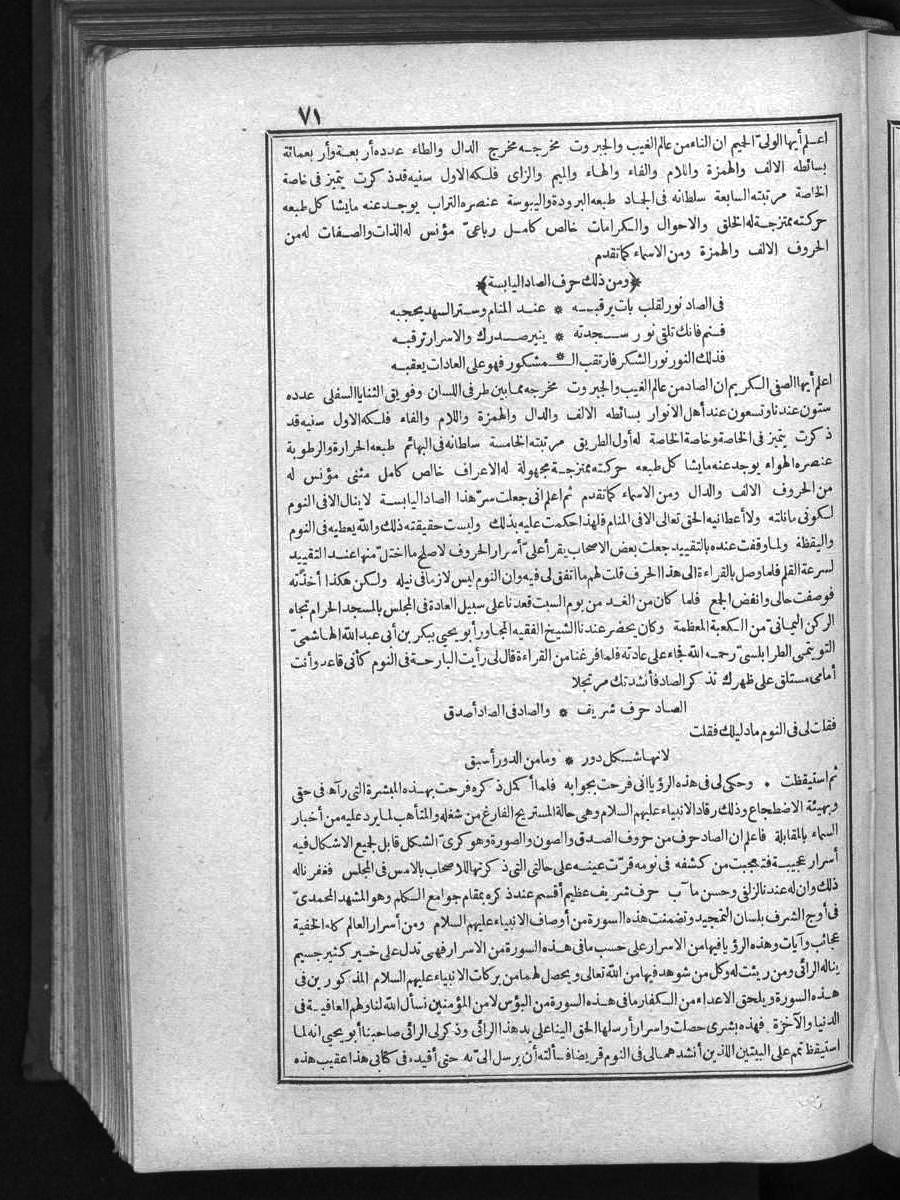 ٧١
اعلم أيها الولي الحميم ان التاء من عالم الغيب والجبروت مخرجه مخرج الدال والطاء عدده أربعة وأربعمائة
بسائطه الالف والهمزة واللام والفاء والهاء والميم والزاى فلكه الاول سنيه قد ذكرت يتميز فى خاصة
الخاصة مرتبته السابعة سلطانه فى الجماد طبعه البرودة واليبوسة عنصره التراب يوجد عنه ما يشاكل طبعه
حركته ممتزجة له الخلق والاحوال والكرامات خالص كامل رباعىّ مؤنس له الذات والصفات له من
الحروف الالف والهمزة ومن الاسماء كما تقدم
﴿ومن ذلك حرف الصاد اليابسة﴾
فى الصاد نور لقلب بات يرقبه * عند المنام وستر السهد يحجبه
فنم فانك تلقى نور سجدته * ينير صدرك والاسرار ترقبه
فذلك النور نور الشكر فارتقب الـ * ـمشكور فهو على العادات يعقبه
اعلم أيها الصفى الكريم ان الصاد من عالم الغيب والجبروت مخرجه مما بين طرفى اللسان وفويق الثنايا السفلى عدده
ستون عندنا وتسعون عند أهل الانوار بسائطه الالف والدال والهمزة واللام والفاء فلكه الاول سنيه قد
ذكرت يتميز فى الخاصة وخاصة الخاصة له أول الطريق مرتبته الخامسة سلطانه فى البهائم طبعه الحرارة والرطوبة
عنصره الهواء يوجد عنه ما يشاكل طبعه حركته ممتزجة مجهولة له الاعراف خالص كامل مثنى مؤنس له
من الحروف الالف والدال ومن الاسماء كما تقدم ثم اعلم انى جعلت سرّ هذا الصاد اليابسة لا ينال الا فى النوم
لكونى مانلته ولا أعطانيه الحق تعالى الا فى المنام فلهذا حكمت عليه بذلك وليست حقيقته ذلك والله يعطيه فى النوم
واليقظة ولما وقفت عنده بالتقييد جعلت بعض الاصحاب يقرأ علىّ أسرار الحروف لاصلح ما اختل منها عند التقييد
لسرعة القلم فلما وصل بالقراءة الى هذا الحرف قلت لهم ما اتفق لى فيه وان النوم ليس لازما فى نيله ولكن هكذا أخذته
فوصفت حالى وانفض الجمع فلما كان من الغد من يوم السبت قعدنا على سبيل العادة فى المجلس بالمسجد الحرام تجاه
الركن اليمانىّ من الكعبة المعظمة وكان يحضر عندنا الشيخ الفقيه المجاور أبو يحيى ببكر بن أبى عبد الله الهاشمىّ
التويتمى الطرابلسىّ رحمه الله فجاء على عادته فلما فرغنا من القراءة قال لى رأيت البارحة فى النوم كأنى قاعد وأنت
أمامى مستلق على ظهرك تذكر الصاد فأنشدتك مرتجلا
الصاد حرف شريف * والصاد فى الصاد أصدق
فقلت لى فى النوم ما دليلك فقلت
لانها شكل دور * وما من الدور أسبق
ثم استيقظت . وحكى لى فى هذه الرؤيا انى فرحت بجوابه فلما أكمل ذكره فرحت بهذه المبشرة التى رآه فى حقى
وبهيئة الاضطجاع وذلك رقاد الانبياء عليهم السلام وهى حالة المستريح الفارغ من شغله والمتأهب لما يرد عليه من أخبار
السماء بالمقابلة فاعلم ان الصاد حرف من حروف الصدق والصون والصورة وهو كرىّ الشكل قابل لجميع الاشكال فيه
أسرار عجيبة فتعجبت من كشفه فى نومه قرّت عينه على حالتى التى ذكرتها للاصحاب بالامس فى المجلس فغفر ناله
ذلك وان له عندنا لزلفى وحسن مآب حرف شريف عظيم أقسم عند ذكره بمقام جوامع الكلم وهو المشهد المحمدىّ
فى أوج الشرف بلسان التمجيد وتضمنت هذه السورة من أوصاف الانبياء عليهم السلام ومن أسرار العالم كله الخفية
عجائب وآيات وهذه الرؤيا فيها من الاسرار على حسب ما فى هذه السورة من الاسرار فهى تدل على خير كثير جسيم
يناله الرائى ومن ريئت له وكل من شوهد فيها من الله تعالى ويحصل لهما من بركات الانبياء عليهم السلام المذكورين فى
هذه السورة ويلحق الاعداء من الكفار ما فى هذه السورة من البؤس لا من المؤمنين نسأل الله لنا ولهم العافية فى
الدنيا والآخرة فهذه بشرى حصلت واسرار أرسلها الحق الينا على يد هذا الرائى وذكر لى الرائى صاحبنا أبو يحيى انه لما
استيقظ تمم على البيتين اللذين أنشدهما لى فى النوم قريضا فسألته أن يرسل الىّ به حتى أقيده فى كتابى هذا عقيب هذه